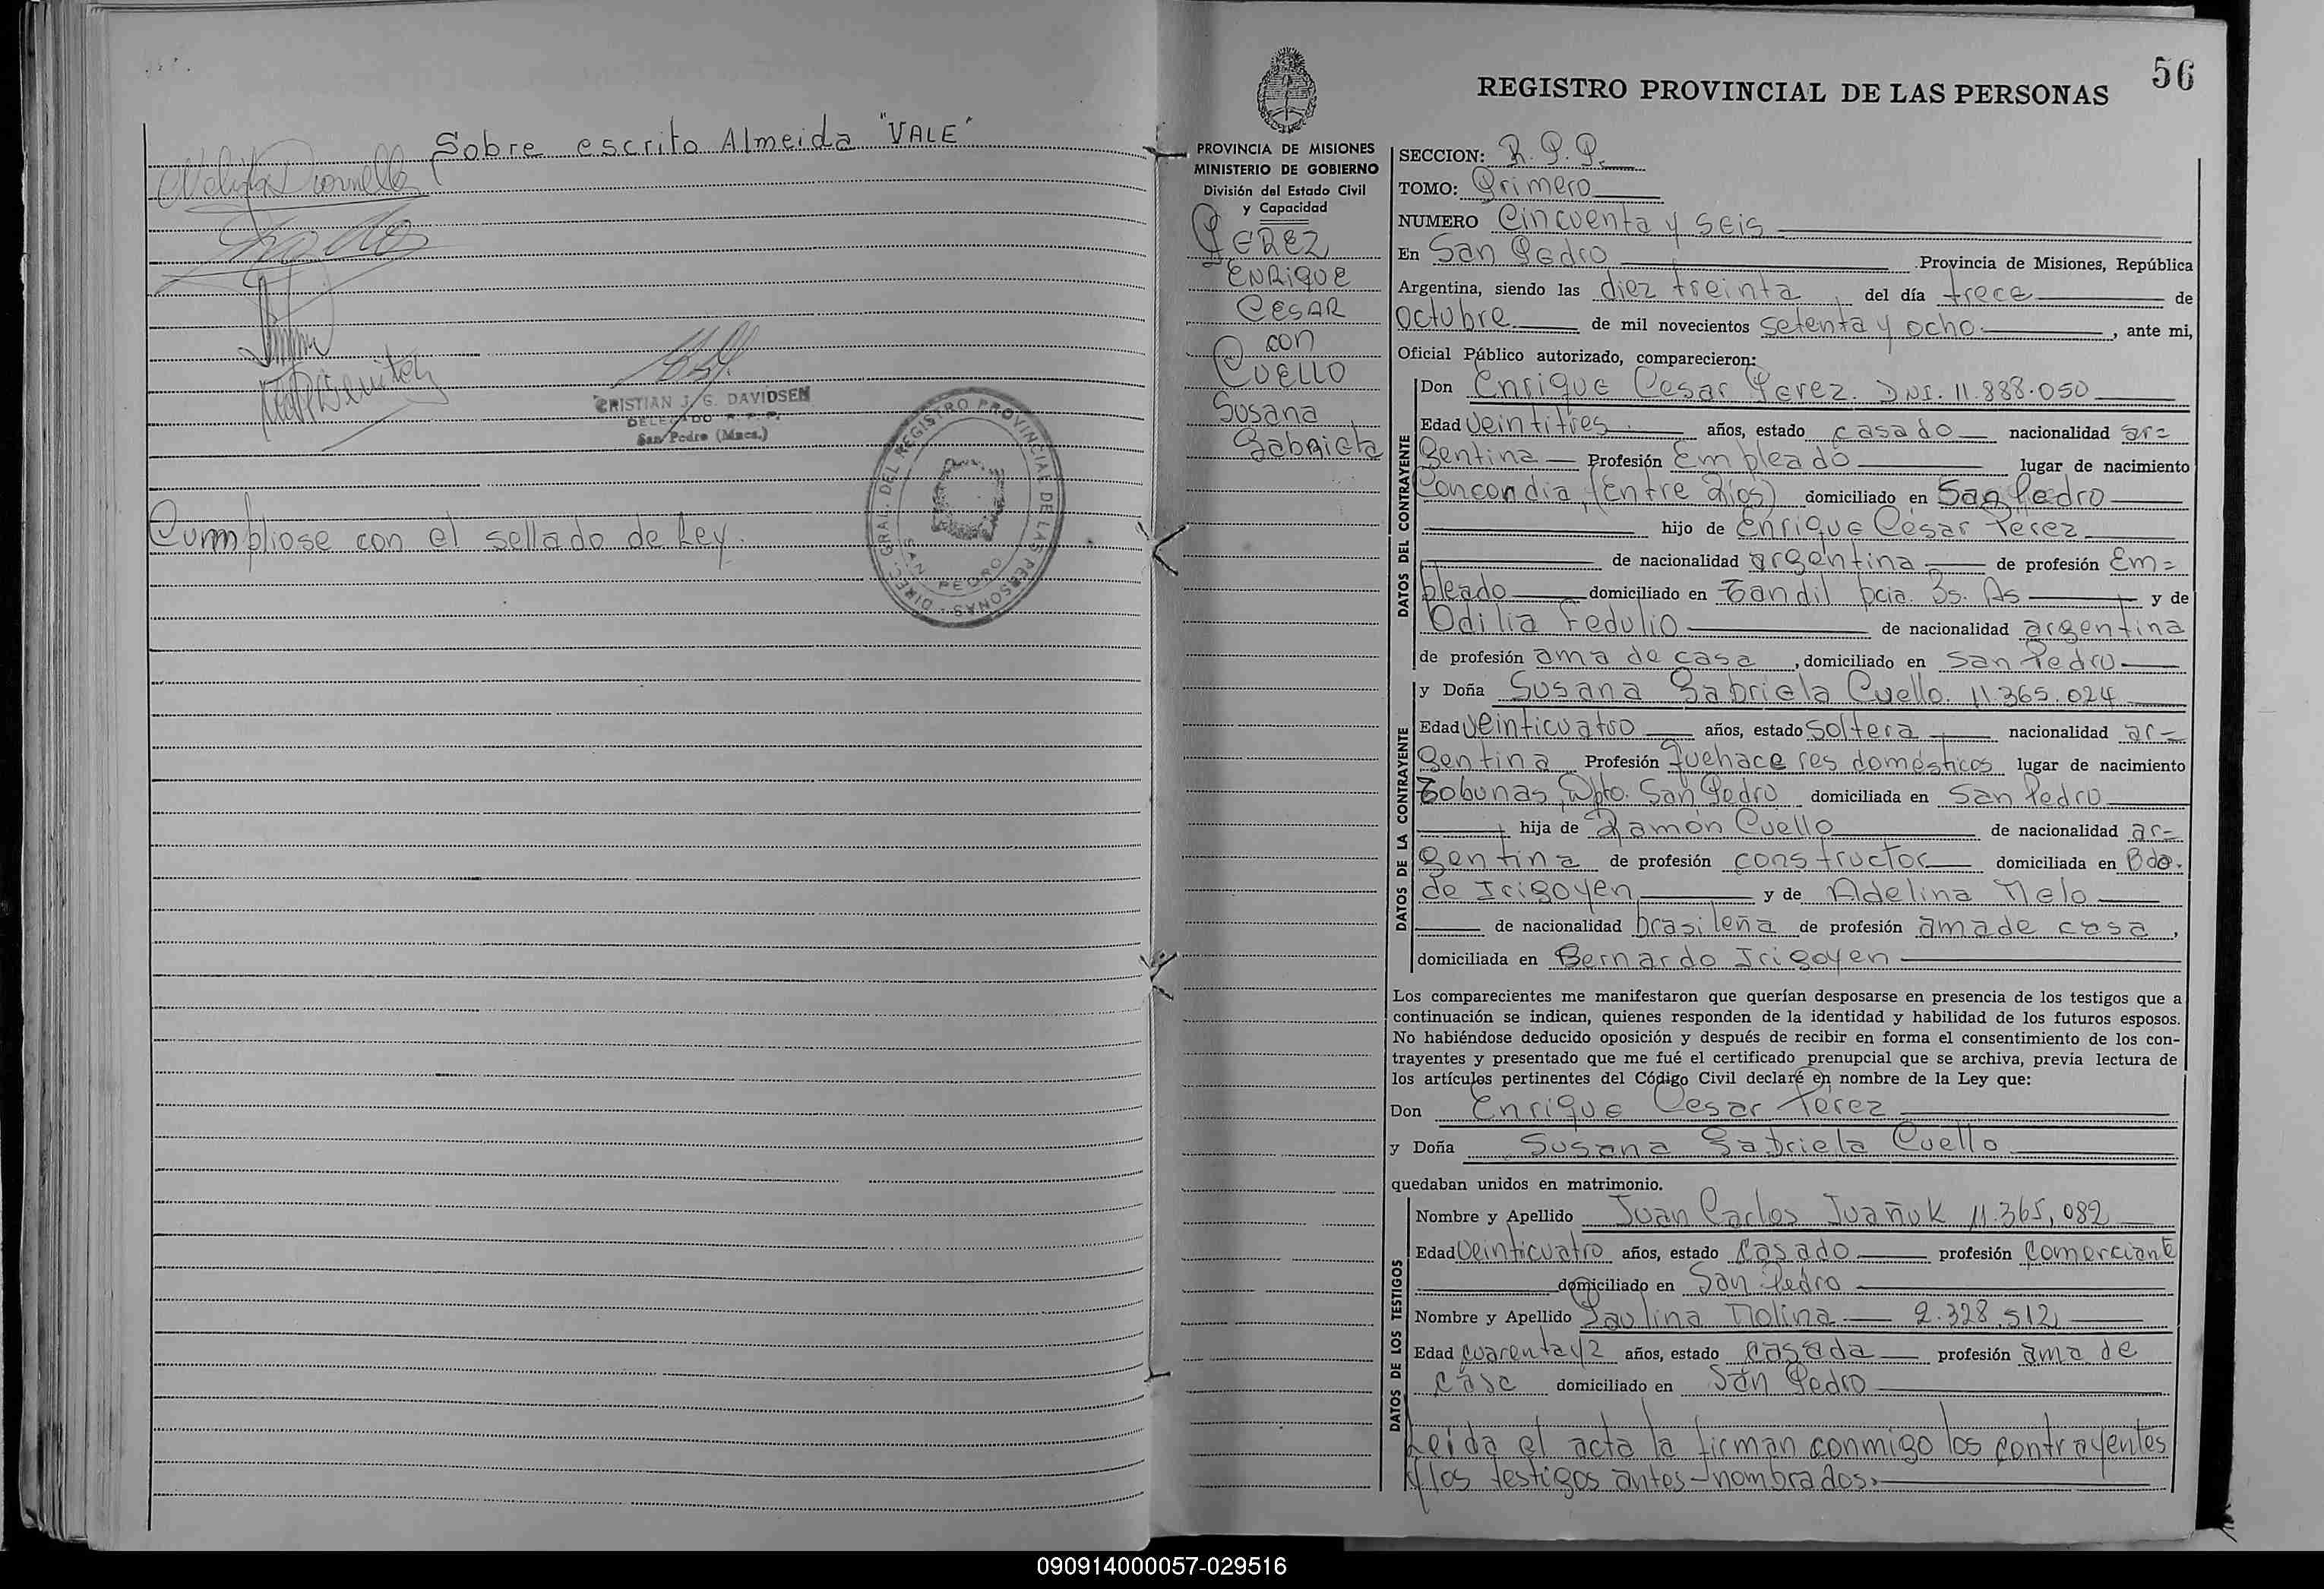 Sobre escrito Almeida "VALE"
CRISTIAN J. G. DAVIDSEN
DELEGADO R. P. P.
San Pedro (Mnes.)
DIREC. GRAL. DEL REGISTRO PROVINCIAL DE LAS PERSONAS
SAN PEDRO
Cumpliose con el sellado de Ley.
56
REGISTRO PROVINCIAL DE LAS PERSONAS
PROVINCIA DE MISIONES
MINISTERIO DE GOBIERNO
División del Estado Civil
y Capacidad
PEREZ
ENRIQUE
CESAR
con
CUELLO
Susana
Gabriela
SECCION: R. P. P.
TOMO: Primero
NUMERO Cincuenta y seis
En San Pedro Provincia de Misiones, República
Argentina, siendo las diez treinta, del día trece de
Octubre de mil novecientos setenta y ocho, ante mi,
Oficial Público autorizado, comparecieron:
DATOS DEL CONTRAYENTE
Don Enrique Cesar Perez. DNI. 11.888.050
Edad veintitres años, estado casado nacionalidad ar=
gentina Profesión Empleado lugar de nacimiento
Concordia, (Entre Ríos) domiciliado en San Pedro
hijo de Enrique César Pérez
de nacionalidad argentina de profesión Em=
pleado domiciliado en Tandil pcia. Bs. As y de
Odilia Fedulio de nacionalidad argentina
de profesión ama de casa, domiciliado en San Pedro
DATOS DE LA CONTRAYENTE
y Doña Susana Gabriela Cuello. 11.365.024
Edad veinticuatro años, estado soltera nacionalidad ar=
gentina Profesión quehaceres domésticos lugar de nacimiento
Tobunas, Dpto. San Pedro domiciliada en San Pedro
hija de Ramón Cuello de nacionalidad ar=
gentina de profesión constructor domiciliada en Bdo.
de Irigoyen y de Adelina Melo
de nacionalidad brasileña de profesión ama de casa,
domiciliada en Bernardo Irigoyen
Los comparecientes me manifestaron que querían desposarse en presencia de los testigos que a
continuación se indican, quienes responden de la identidad y habilidad de los futuros esposos.
No habiéndose deducido oposición y después de recibir en forma el consentimiento de los con-
trayentes y presentado que me fué el certificado prenupcial que se archiva, previa lectura de
los artículos pertinentes del Código Civil declaré en nombre de la Ley que:
Don Enrique Cesar Pérez
y Doña Susana Gabriela Cuello
quedaban unidos en matrimonio.
DATOS DE LOS TESTIGOS
Nombre y Apellido Juan Carlos Juañuk 11.365.082
Edad Veinticuatro años, estado Casado profesión Comerciante
domiciliado en San Pedro
Nombre y Apellido Paulina Molina 2.328.512
Edad cuarenta y 2 años, estado casada profesión ama de
casa domiciliado en San Pedro
Leida el acta la firman conmigo los contrayentes
y los testigos antes nombrados.
090914000057-029516